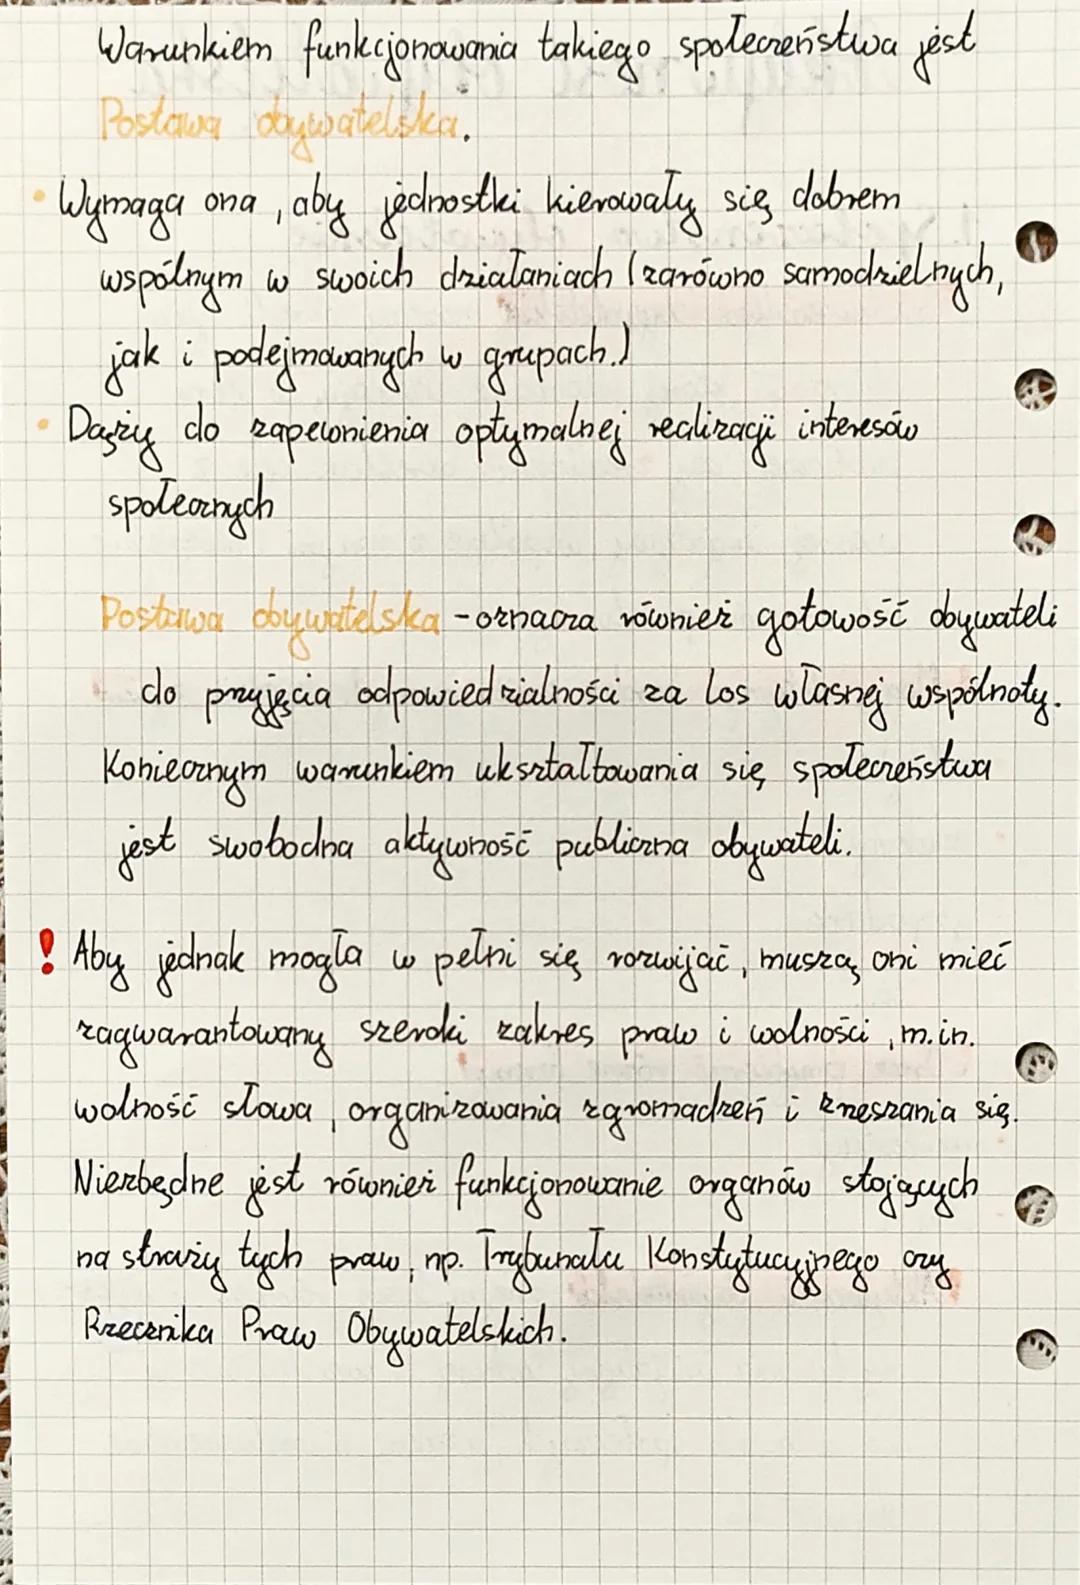 Warunkiem funkcjonowania takiego społeczeństwa jest
Postawa obywatelska.
• Wymaga ona, aby jednostki kierowały się dobrem
wspólnym w swoich działaniach (zarówno samodzielnych,
jak i podejmowanych w grupach.)
• Dąży do zapewnienia optymalnej realizacji interesów
społecznych
Postawa obywatelska - oznacza również gotowość obywateli
do przyjęcia odpowiedzialności za los własnej wspólnoty.
Koniecznym warunkiem ukształtowania się społeczeństwa
jest swobodna aktywność publiczna obywateli.
! Aby jednak mogła w pełni się rozwijać, muszą oni mieć
zagwarantowany szeroki zakres praw i wolności, m.in.
wolność słowa, organizowania zgromadzeń i zrzeszania się.
Niezbędne jest również funkcjonowanie organów stojących
na straży tych praw, np. Trybunału Konstytucyjnego czy
Rzecznika Praw Obywatelskich.